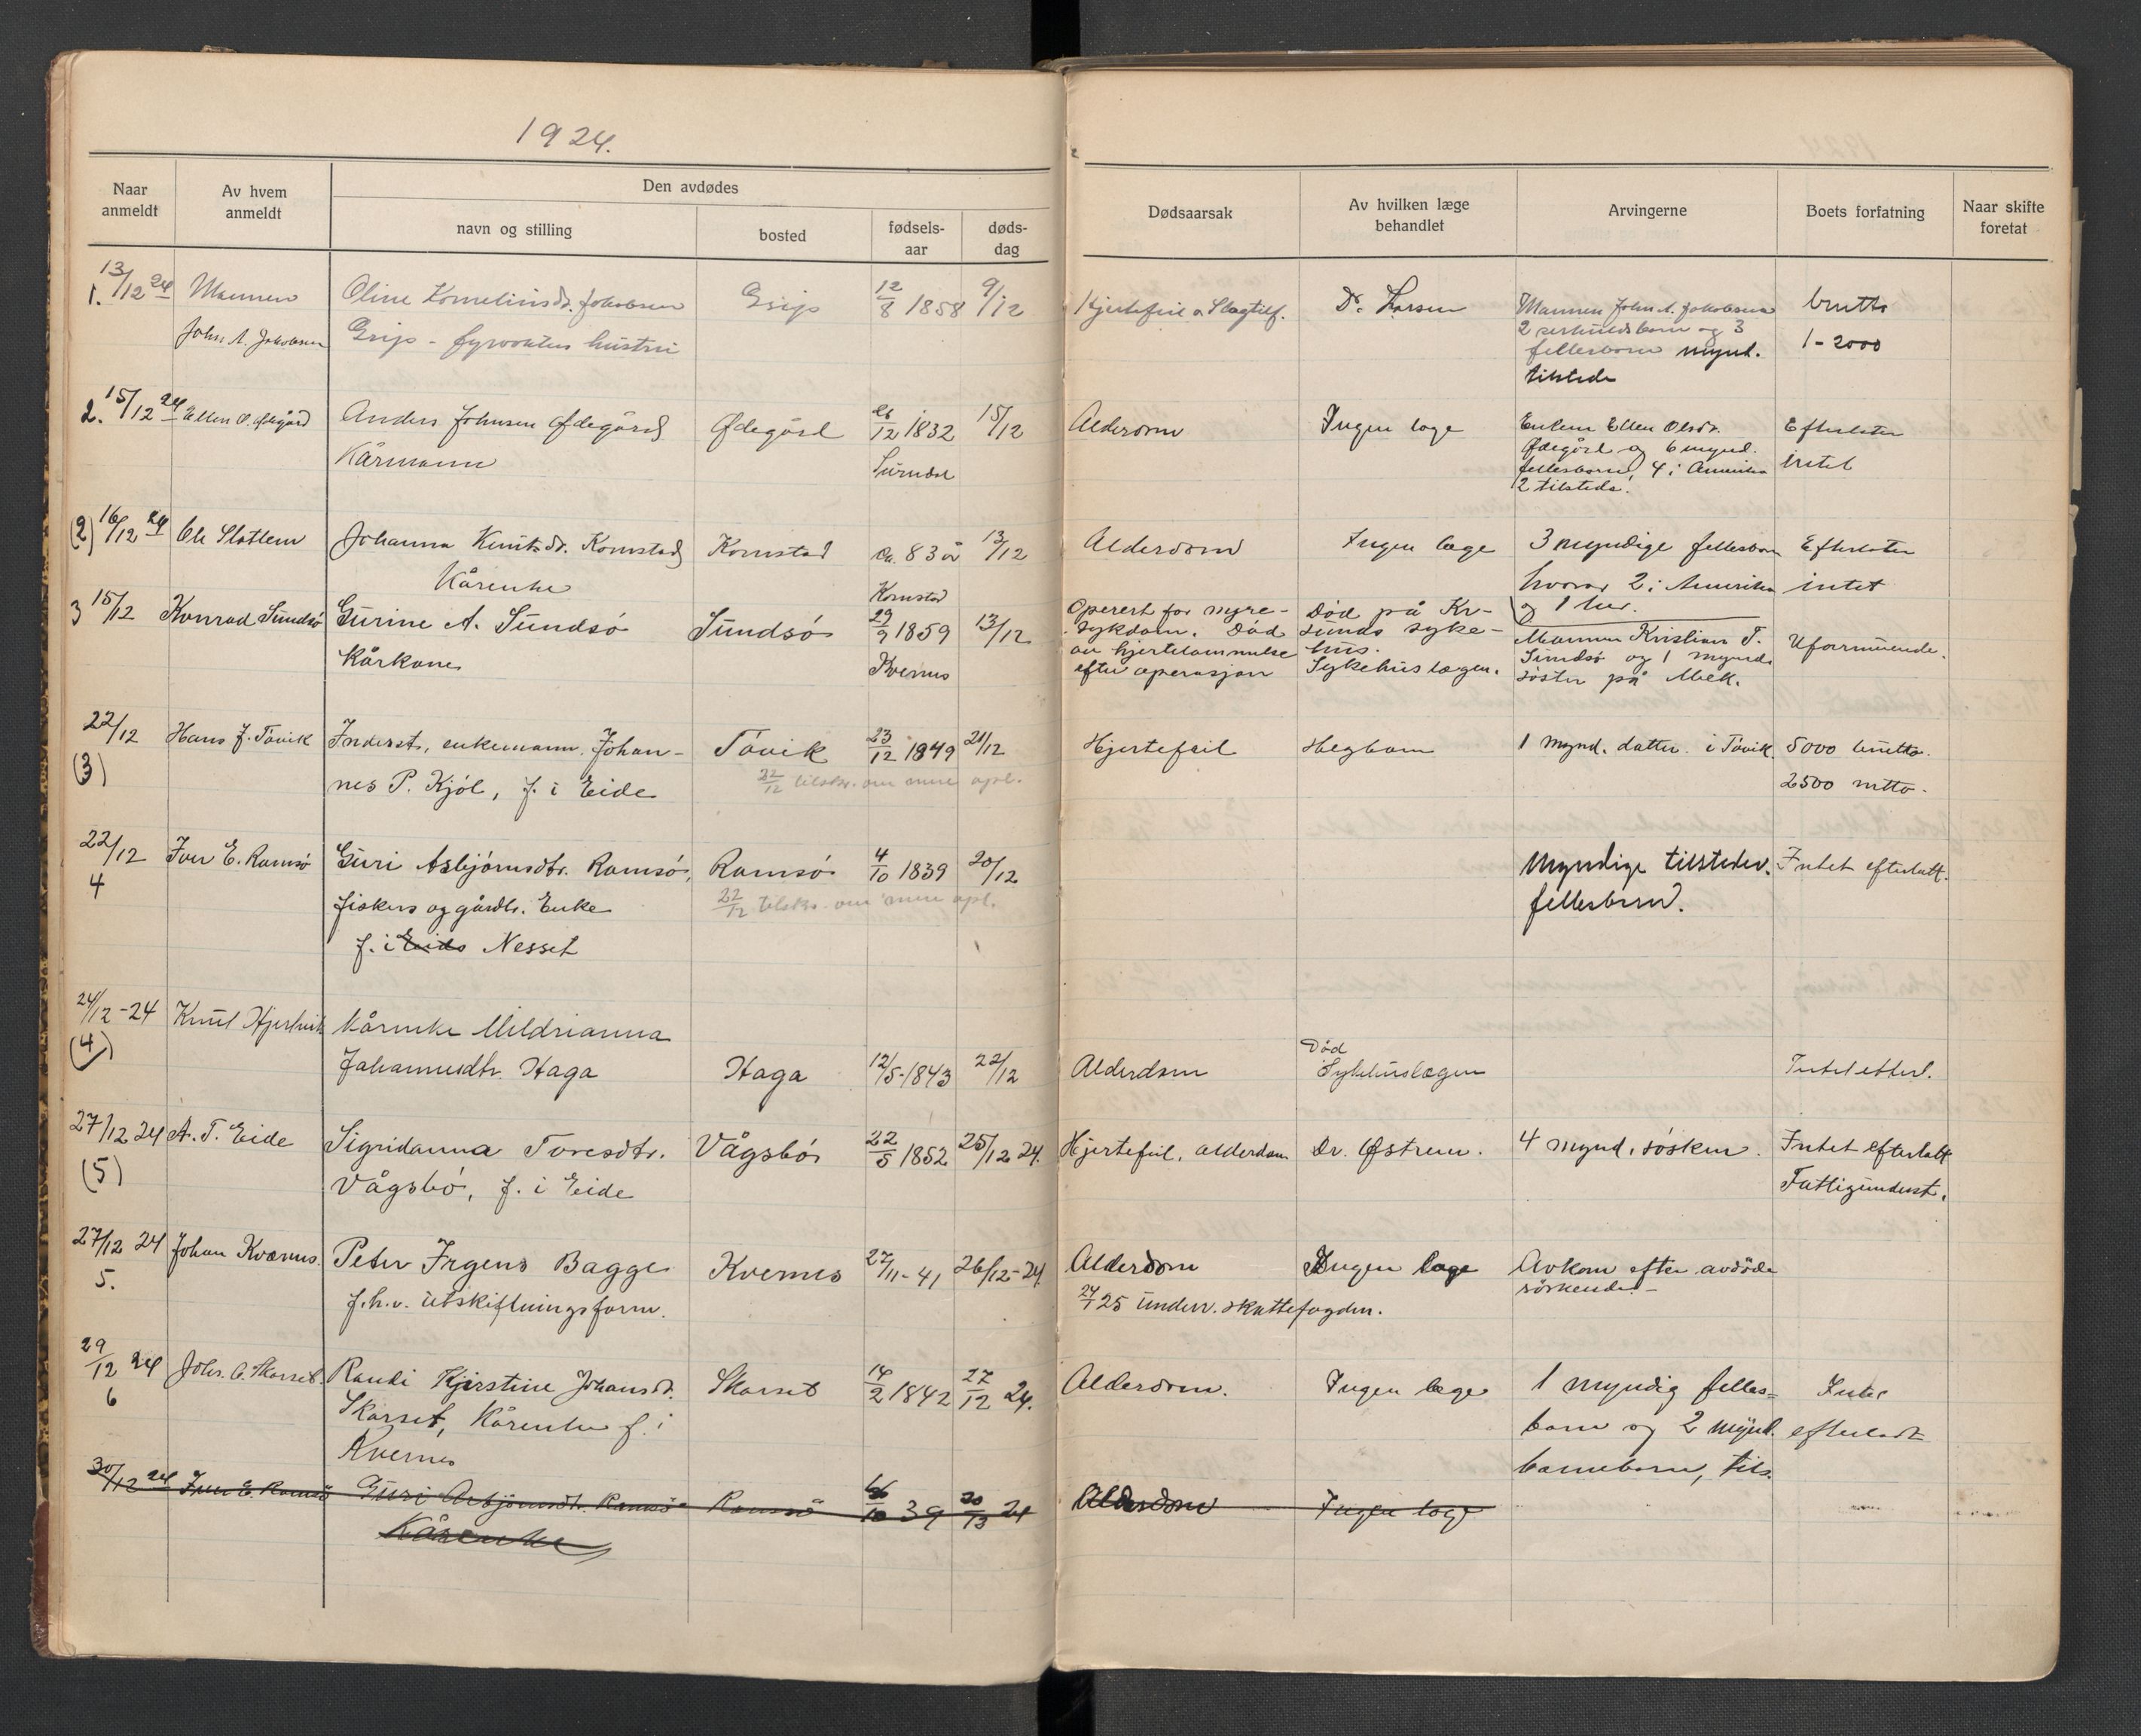 1924.
Naar anmeldt
Av hvem anmeldt
Den avdødes
navn og stilling
bosted
fødsels-aar
døds-dag
Dødsaarsak
Av hvilken læge behandlet
Arvingerne
Boets forfatning
Naar skifte foretat
1. 13/12 24 Mannen Oline Korneliusdr. Jakobsen Grip 12/8 1858 9/12 Hjertefeil o Slagtilf. Dr. Larsen Mannen John A. Jakobsen brutto
John A. Jakobsen Grip - fyrvokters hustru 2 særkuldsbarn og 3 1-2000
fellesbarn mynd.
tilstede
2. 15/12 24 Ellen O. Ødegård Anders Johnsen Ødegård Ødegård 26/12 1832 15/12 Alderdom Ingen læge Enken Ellen Olsdr. Efterlater
Kårmann Surndal Ødegård og 6 mynd. intet
fellesbarn, 4 i Amerika
2 tilstede.
(2) 16/12 24 Ole Slatlem Johanna Knutsdr. Kornstad Kornstad ca. 83 år 13/12 Alderdom Ingen læge 3 myndige fellesbarn Efterlater
Kårenke Kornstad hvorav 2 i Amerika intet
og 1 her.
3 15/12 Konrad Sundsø Gurine A. Sundsø Sundsø 29/9 1859 13/12 Operert for nyre- Død på Kr- Mannen Kristian T. Uformuende.
Kårkone Kvernes sykdom. Død sunds syke- Sundsø og 1 mynd.
av hjertelammelse hus. søster på Mek.
efter operasjon Sykehuslægen.
22/12 Hans J. Tøvik Inderst, enkemann Johan- Tøvik 23/12 1849 21/12 Hjertefeil Hegbom 1 mynd. datter i Tøvik 5000 brutto.
(3) nes P. Kjøl, f. i Eide 22/12 tilskr. om nme opl. 2500 netto.
22/12 Iver E. Ramsø Guri Asbjørnsdtr. Ramsø, Ramsø 4/10 1839 20/12 Myndige tilstedev. Intet efterlatt.
4 fiskers og gårdbr. Enke 22/12 tilskr. om nme opl. fellesbarn.
f. i Eide Nesset
24/12-24 Knut Hjertvik Kårenke Mildrianna
(4) Johannesdtr. Haga Haga 12/5-1843 22/12 Alderdom Død Sykehuslægen Intet etterl.
27/12 24 A. T. Eide Sigridanna Toresdtr. Vågsbø 22/5 1852 25/12 24. Hjertefeil, alderdom Dr. Østrem. 4 mynd. søsken. Intet efterlatt
(5) Vågsbø, f. i Eide Fattigunderst.
27/12 24 Johan Kværnes. Peter Irgens Bagge Kvernes 27/11-41 26/12-24 Alderdom Ingen læge Avkom efter avdøde
5. f.h.v. utskiftningsform. 24/1 25 underr. skattefogden. søskende.-
29/12 24 Johs. O. Skarset. Randi Kjerstine Johansd. Skarset 14/2 1842 27/12 24. Alderdom. Ingen læge 1 myndig felles- Intet
6 Skarset, Kårenke f. i barn og 2 mynd. efterladt
Kvernes barnebarn, tils.
30/12 24 Iver E. Ramsø Guri Asbjørnsdtr. Ramsø Ramsø 10 39 20/12 24 Alderdom Ingen læge
Kårenke